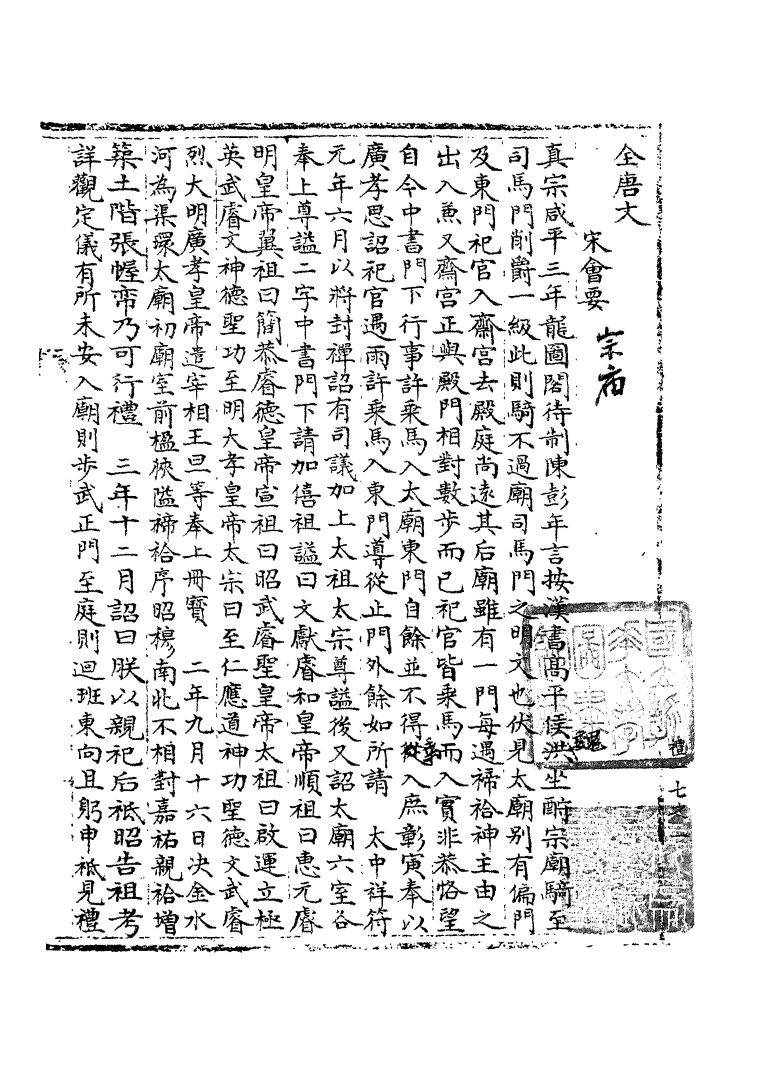 全唐文
宋會要
宗廟
真宗咸平三年龍圖閣待制陳彭年言按漢書高平侯洪坐酎宗廟騎至
司馬門削爵一級此則騎不過廟司馬門之明文也伏見太廟别有偏門
及東門祀官入齋宮去殿庭尚遠其后廟雖有一門每遇禘祫神主由之
出入兼又齋宮正與殿門相對數步而已祀官皆乘馬而入實非恭恪望
自今中書門下行事許乘馬入太廟東門自餘並不得乘入庶彰寅奉以
廣孝思詔祀官遇雨許乘馬入東門導從止門外餘如所請 太中祥符
元年六月以將封禪詔有司議加上太祖太宗尊謚後又詔太廟六室各
奉上尊謚二字中書門下請加僖祖謚曰文獻睿和皇帝順祖曰惠元睿
明皇帝翼祖曰簡恭睿德皇帝宣祖曰昭武睿聖皇帝太祖曰啟運立極
英武睿文神德聖功至明大孝皇帝太宗曰至仁應道神功聖德文武睿
烈大明廣孝皇帝遣宰相王旦等奉上冊寶 二年九月十六日决金水
河為渠環太廟初廟室前楹狹隘禘祫序昭穆南北不相對嘉祐親祫增
築土階張幄帟乃可行禮 三年十二月詔曰朕以親祀后祗昭告祖考
詳觀定儀有所未安入廟則步武正門至庭則迴班東向且躬申祗見禮
魏
禮
七之一